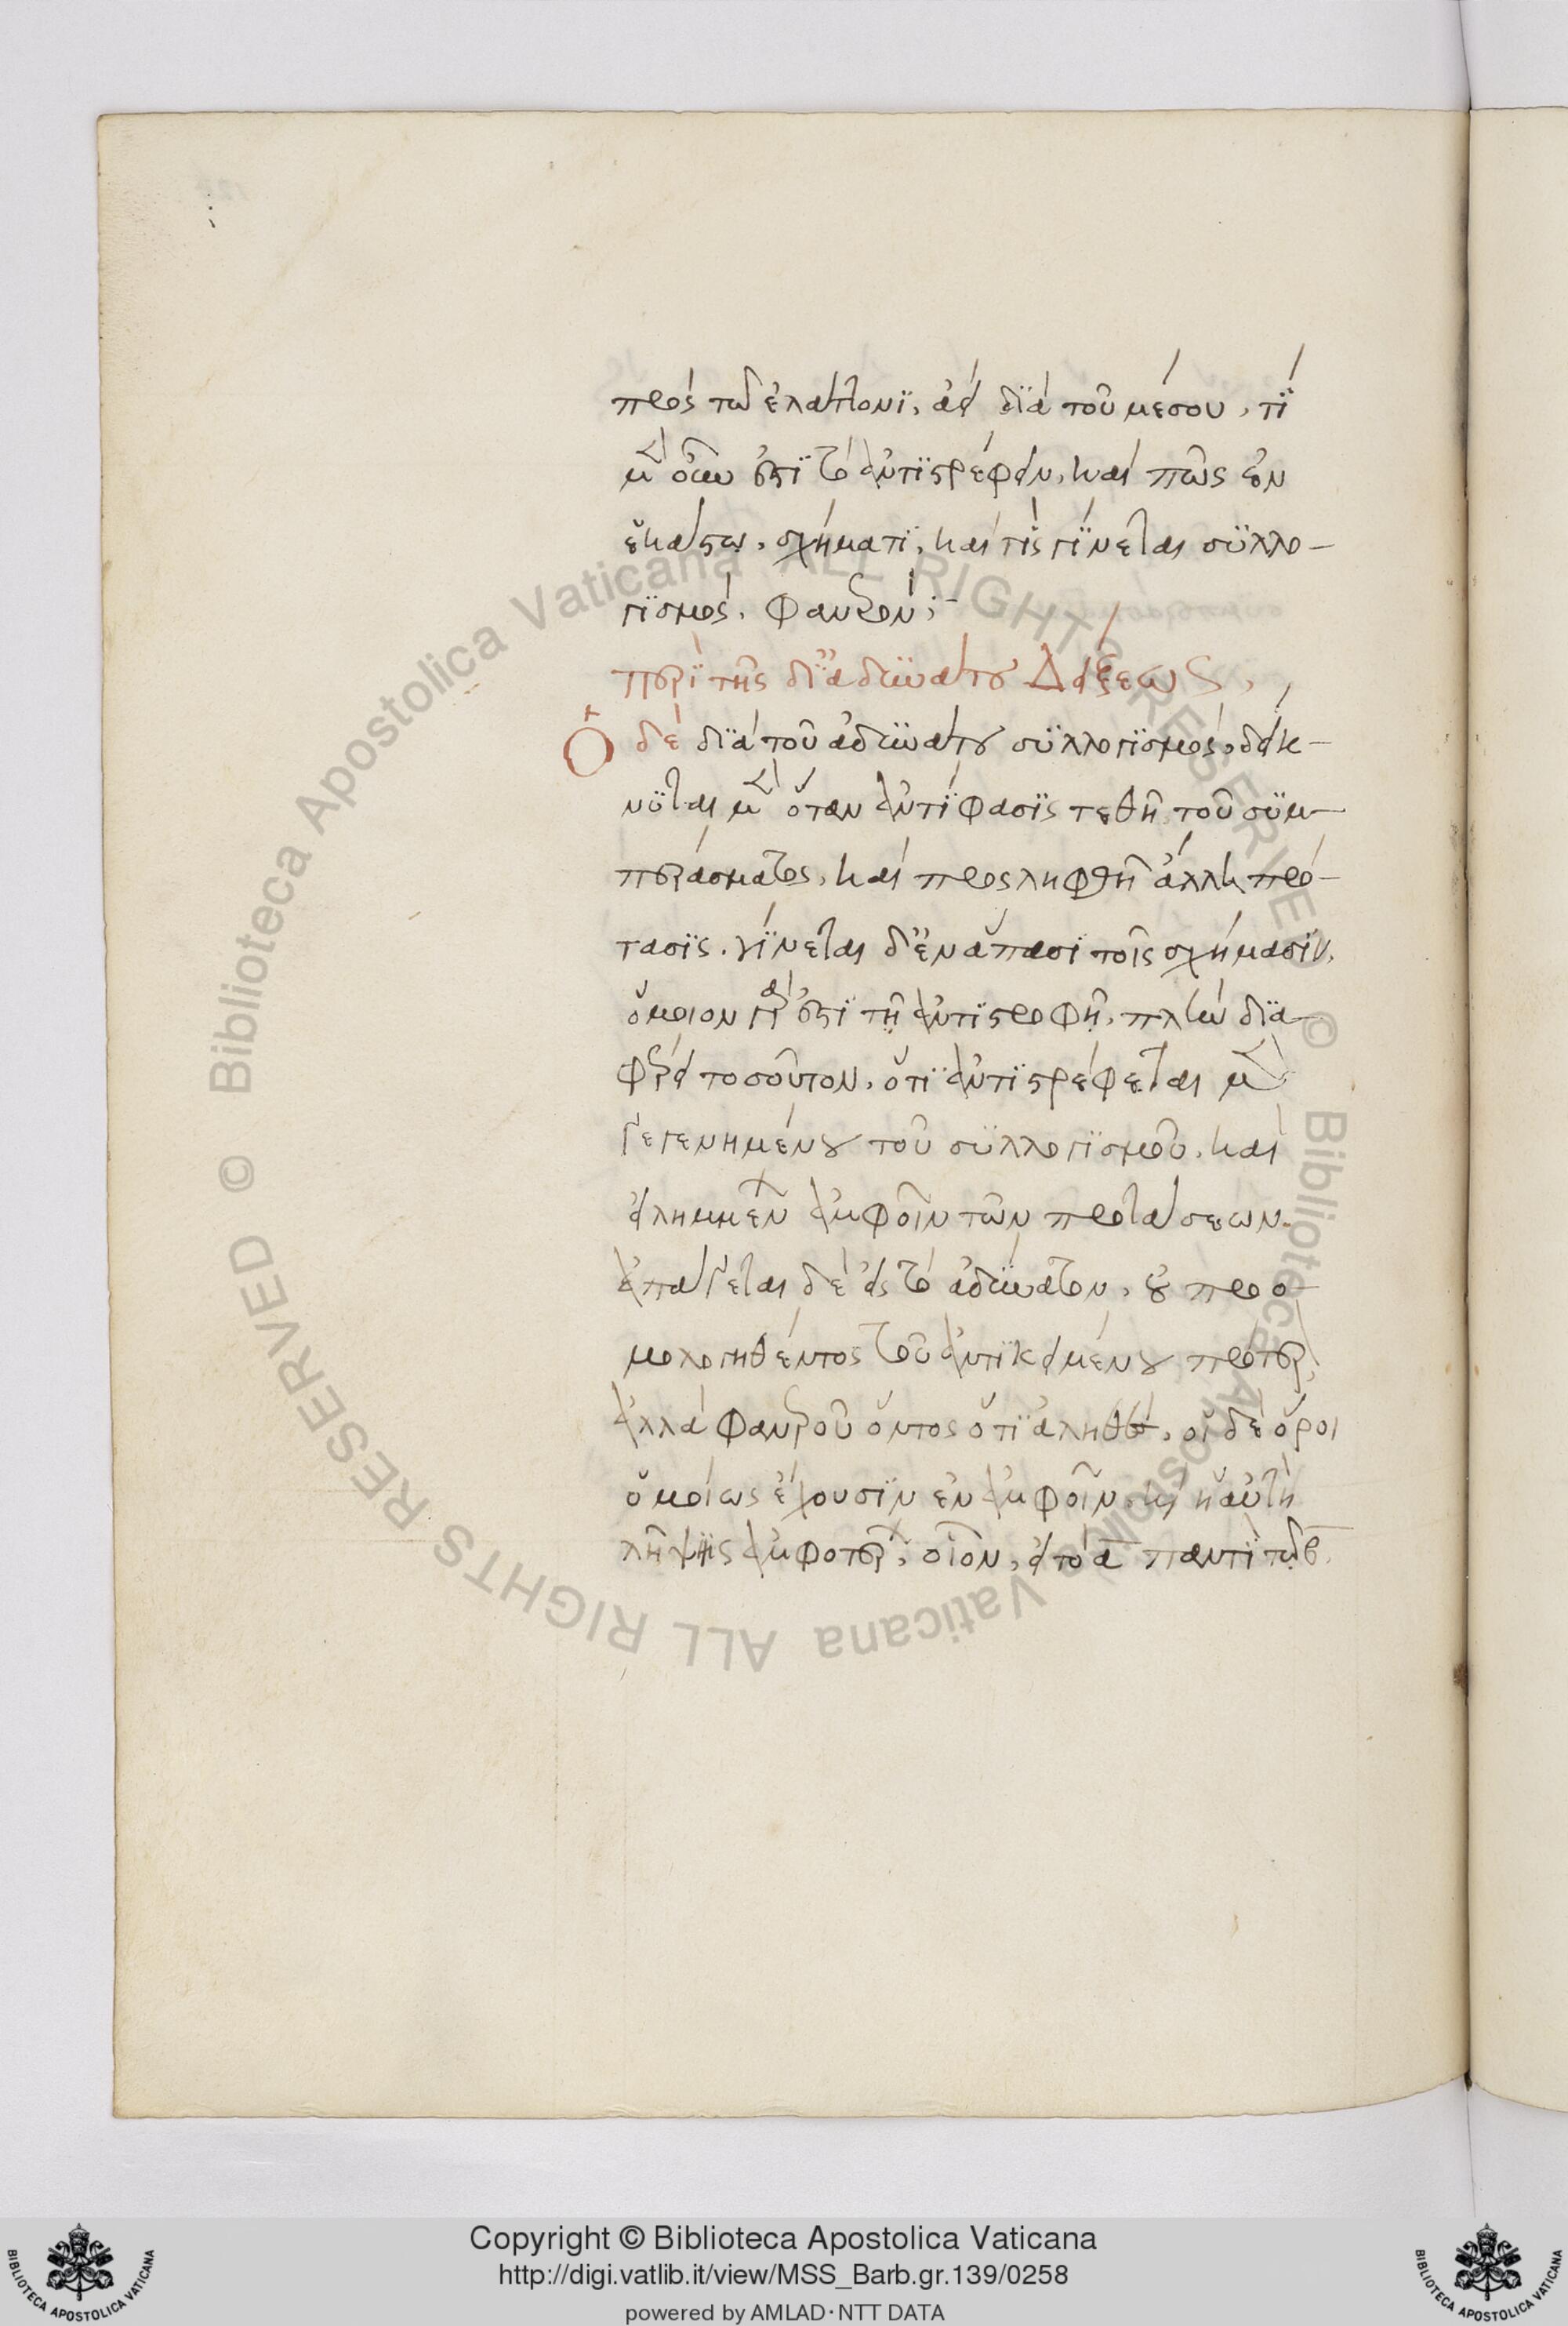 πρὸς τῶ ἐλάττονι, ἀεὶ διὰ τοῦ μέσου, τί
μὲν οὖν ἐστὶ τὸ ἀντιστρέφειν, καὶ πῶς ἐν
ἑκάστω, σχήματι, καὶ τίς γίνεται συλλο–
γισμός, φανερόν:–
περὶ τῆς δι' ἀδυνάτου Δείξεως,
Ὁ δὲ διὰ τοῦ ἀδυνάτου συλλογισμός, δείκ–
νυται μὲν ὅταν ἀντίφασις τεθῆ τοῦ συμ–
περάσματος, καὶ προςληφθῆ ἄλλη πρό–
τασις. γίνεται δ' ἐν ἅπασι τοῖς σχήμασιν,
ὅμοιον γάρ ἐστι τῆ ἀντιστροφῆ, πλὴν δια–
φέρει τοσοῦτον, ὅτι ἀντιστρέφεται μὲν
γεγενημένου τοῦ συλλογισμοῦ, καὶ
εἰλημμένων ἀμφοῖν τῶν προτάσεων.
ἀπάγεται δὲ εἰς τὸ ἀδύνατον, οὐ προο–
μολογηθέντος τοῦ ἀντικειμένου πρότερον,
ἀλλὰ φανεροῦ ὄντος ὅτι ἀληθές, οἱ δὲ ὅροι
ὁμοίως ἔχουσιν ἐν ἀμφοῖν, καὶ ἡ αὐτὴ
λῆψις ἀμφοτέρων, οἷον, εἰ τὸ α παντὶ τῶ β,
Copyright © Biblioteca Apostolica Vaticana
http://digi.vatlib.it/view/MSS_Barb.gr.139/0258
powered by AMLAD·NTT DATA
© Biblioteca Apostolica Vaticana ALL RIGHTS RESERVED © Biblioteca Apostolica Vaticana ALL RIGHTS RESERVED
BIBLIOTECA APOSTOLICA VATICANA
BIBLIOTECA APOSTOLICA VATICANA